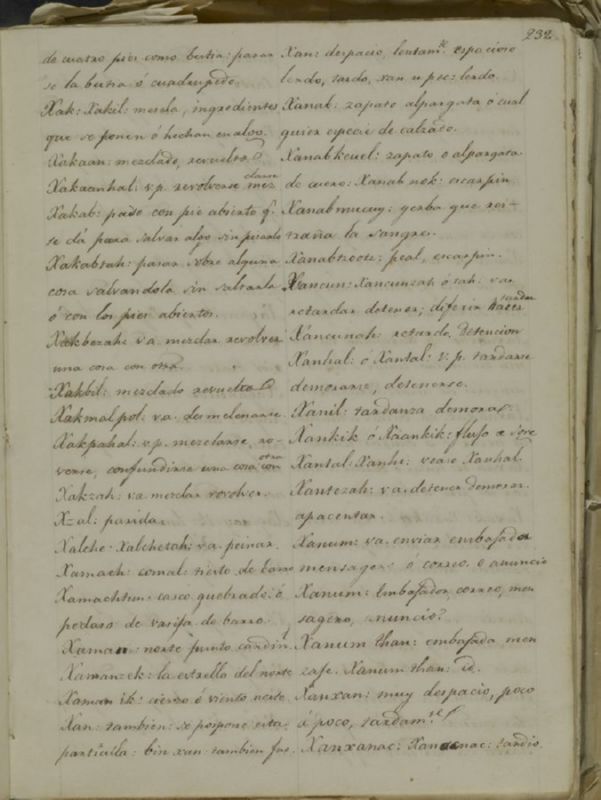 232
de cuatro pies como bestia: parar
se la bestia ó cuadrupedo.
Xak: Xakil: mescla, ingredientes
que se ponen ó hechan en algo.
Xakaan: mezclado, revuelto
Xakaanhal: v.p. revolverse mez
clarse
Xakab: paso con pie abierto q.e
se dá para salvar algo sin pisarlo
Xakabtah: pasar sobre alguna
cosa salvandola sin saltarla
ó con los pies abiertos.
Xakbezah: va. mezclar revolver
una cosa con otra.
Xakbil: mezclado revuelto
Xakmal pol: va. desmelenarse.
Xakpahal: v.p. mezclarse, re-
verse, confundirse una cosa con
otra
Xakzah: va. mezclar revolver.
Xzal: parida.
Xalche: Xalchetah: va. peinar.
Xamach: comal: tiesto de barro
Xamachtun: casco quebrado ó
pedaso de vasija de barro.
Xaman: norte punto cardinl
Xamanzek: la estrella del norte
Xaman ik: cierzo ó viento norte
Xan: tambien: se pospone esta
particula: bin xan: tambien fue.
Xan: despacio, lentam.te espacioso
lerdo, tardo, xan u pec: lerdo.
Xanab: zapato alpargata ó cual
quier especie de calzado.
Xanabkeuel: zapato o alpargata
de cuero: Xanab nok: escarpin
Xanabmucuy: yerba que res-
traña la sangre.
Xanabtzotz: peal, escarpin.
Xancun: Xancunzah ó tah: va.
retardar detener; diferir hacer
tardar
Xancunah: retardo, detencion
Xanhal: ó Xantal: v.p. tardarse
demorarse, detenerse.
Xanil: tardanza demora.
Xankik ó Xaankik: flujo de sgre
Xantal: Xanhi: vease Xanhal
Xantezah: va. detener demorar.
apacentar.
Xanum: va. enviar embajador
mensagero ó correo. o anuncio
Xanum: Embajador, correo, men
sagero, nuncio.
Xanum than: embajada men
zaje. Xanum than: id.
Xanxan: muy despacio, poco
á poco, tardam.te
Xanxanac: Xanacnac: tardio.